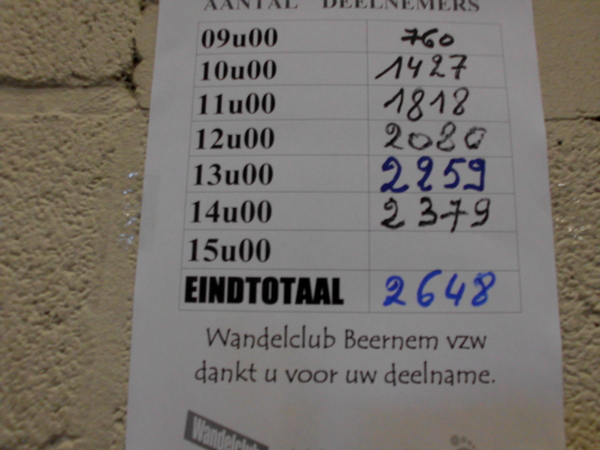 AANTAL DEELNEMERS
09u00 760
10u00 1427
11u00 1818
12u00 2080
13u00 2259
14u00 2379
15u00
EINDTOTAAL 2648
Wandelclub Beernem vzw
dankt u voor uw deelname.
Wandelclub